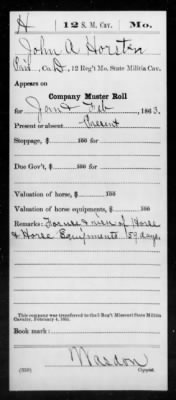 H 12 S. M. Cav. Mo.
John A Horsten
Pvt., Co. D, 12 Reg't Mo. State Militia Cav.
Appears on
Company Muster Roll
for Jan & Feb, 1863.
Present or absent Present
Stoppage, $ 100 for
Due Gov't, $ 100 for
Valuation of horse, $ 100
Valuation of horse equipments, $ 100
Remarks: Former owner of Horse
& Horse Equipments 59 days.
This company was transferred to the 5 Reg't Missouri State Militia
Cavalry, February 4, 1863.
Book mark:
Wasdon
(358) Copyist.